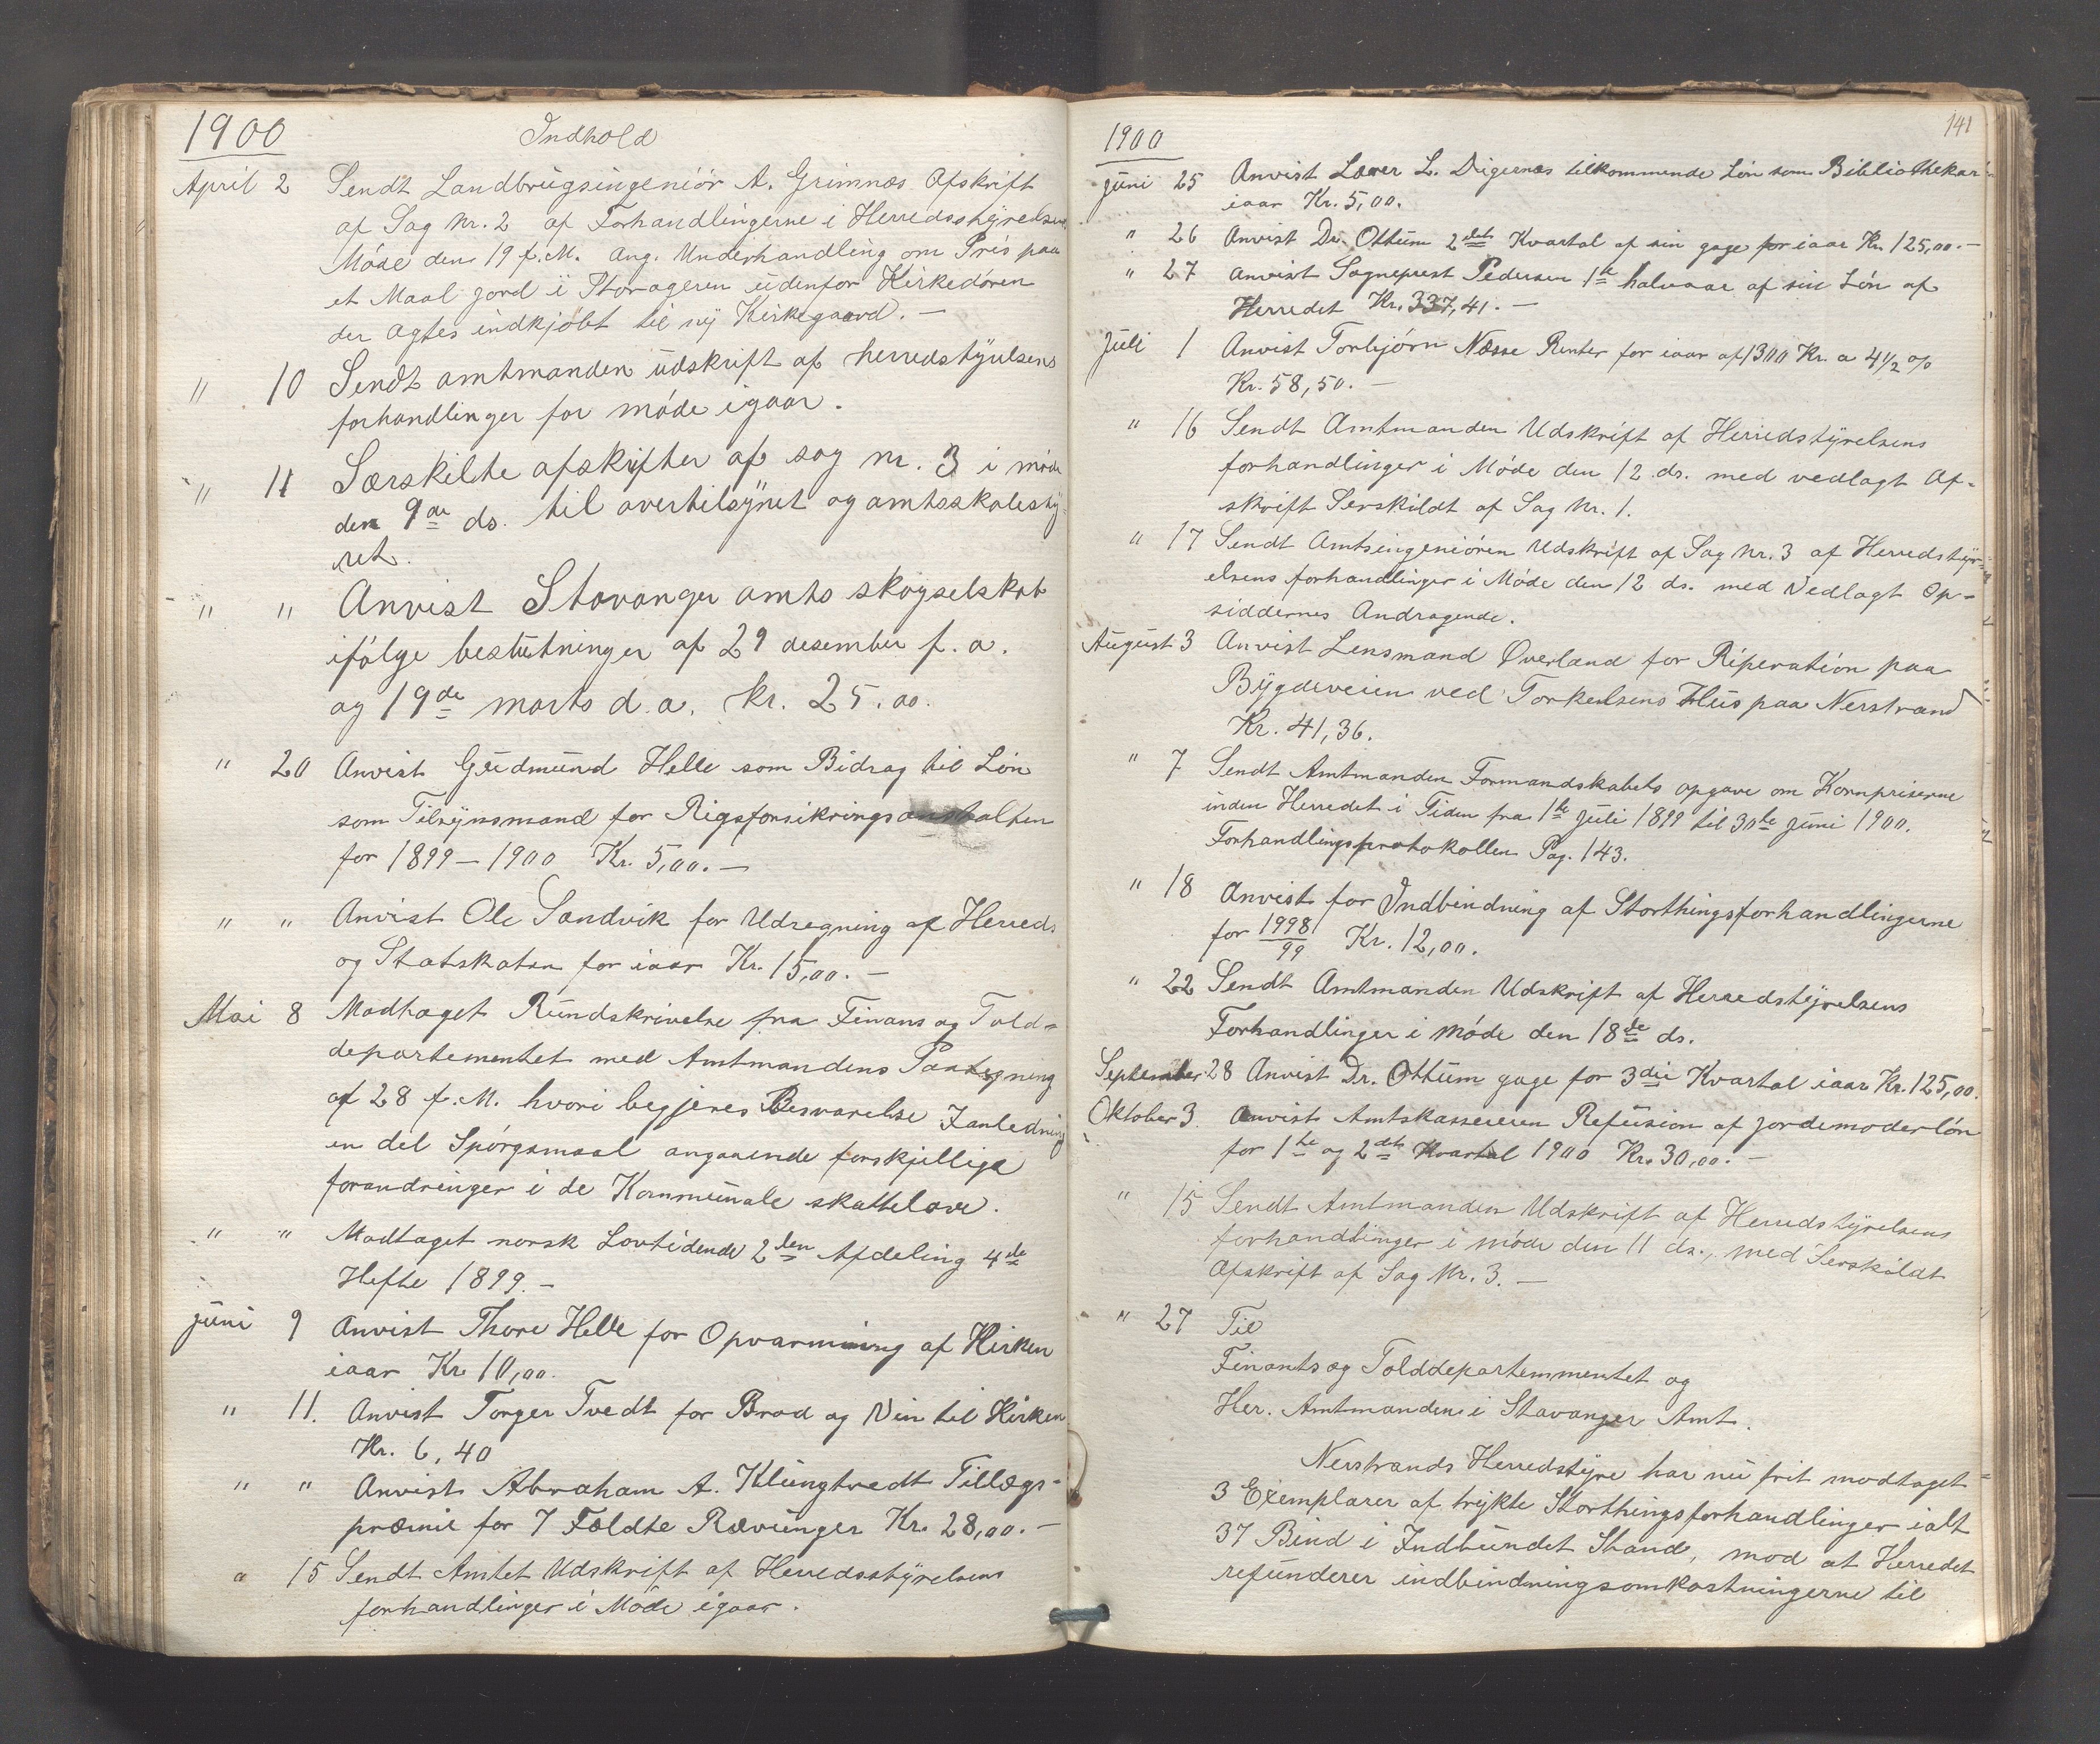 1900 Indhold
April 2 Sendt Landbrugsingeniör A. Grimnæs Afskrift
af Sag Nr. 2 af Forhandlingerne i Herredsstyrelsens
Möde den 19 f. M. ang. Underhandling om Pris paa
et Maal jord i Storageren udenfor Kirkedören
der agtes indkjöbt til ny Kirkegaard. —
" 10 Sendt amtmanden udskrift af herredstyrelsens
forhandlinger for möde igaar.
" 11 Særskilte afskrifter af sag nr. 3 i möde
den 9de ds. til overtilsynet og amtsskolesty-
ret.
" " Anvist Stavanger amts skogselskab
ifölge beslutninger af 29 desember f. a.
og 19de marts d. a. kr. 25.00.
" 20 Anvist Gudmund Helle som Bidrag til Lön
som Tilsynsmand for Rigsforsikringsanstalten
for 1899-1900 Kr. 5,00. —
" " Anvist Ole Sandvik for Udregning af Herreds
og Statskatten for iaar Kr. 15,00. —
Mai 8 Modtaget Rundskrivelse fra Finans og Told-
departementet med Amtmandens Paategning
af 28 f. M. hvori begjæres Besvarelse Ianledning
en del Spörgsmaal angaaende forskjellige
forandringer i de Kommunale skattelove.
" " Modtaget norsk Lovtidende 2den Afdeling 4de
Hefte 1899. —
Juni 9 Anvist Thore Helle for Opvarmning af Kirken
iaar Kr. 10,00.
" 11. Anvist Torger Tvedt for Brød og Vin til Kirken
Kr. 6,40
" " Anvist Abraham A. Klungtvedt Tillægs-
præmie for 7 Fældte Ræveunger Kr. 28,00. —
" 15 Sendt Amtet Udskrift af Herredsstyrelsens
forhandlinger i Möde igaar.
141
1900
Juni 25 Anvist Lærer L. Digernæs tilkommende Lön som Bibliothekar
iaar Kr. 5,00.
" 26 Anvist Dr. Ottum 2det Kvartal af sin gage for iaar Kr. 125,00. —
" 27 Anvist Sogneprest Pedersen 1te halvaar af sin Lön af
Herredet Kr. 337,41. —
Juli 1 Anvist Torbjörn Næsse Renter for iaar af 1300 Kr. a 4 1/2 %
Kr. 58,50. —
" 16 Sendt Amtmanden Udskrift af Herredstyrelsens
forhandlinger i Möde den 12 ds. med vedlagt Af-
skrift Serskildt af Sag Nr. 1.
" 17 Sendt Amtsingeniören Udskrift af Sag Nr. 3 af Herredstyr-
elsens forhandlinger i Möde den 12 ds. med Vedlagt Op-
siddernes Andragende.
August 3 Anvist Lensmand Øverland for Riperation paa
Bygdeveien ved Torkelsens Hus paa Nerstrand
Kr. 41,36.
" 7 Sendt Amtmanden Formandskabets opgave om Kornpriserne
inden Herredet i Tiden fra 1te Juli 1899 til 30te Juni 1900.
Forhandlingsprotokollen Pag. 143.
" 18 Anvist for Indbindning af Storthingsforhandlingerne
for 1998/99 Kr. 12,00.
" 22 Sendt Amtmanden Udskrift af Herredstyrelsens
Forhandlinger i Möde den 18de ds.
September 28 Anvist Dr. Ottum gage for 3die Kvartal iaar Kr. 125,00.
Oktober 3. Anvist Amtskassereren Refusion af Jordemoderlön
for 1te og 2det Kvartal 1900 Kr. 30,00. —
" 15 Sendt Amtmanden Udskrift af Herredstyrelsens
forhandlinger i möde den 11 ds., med Serskildt
Afskrift af Sag Nr. 3. —
" 27 Til
Finants og Tolddepartemmentet og
Her. Amtmanden i Stavanger Amt.
Nerstrands Herredstyre har nu frit modtaget
3 Exemplarer af trykte Storthingsforhandlinger ialt
37 Bind i Indbundet Stand, mod at Herredet
refunderer indbindningsomkostningerne til